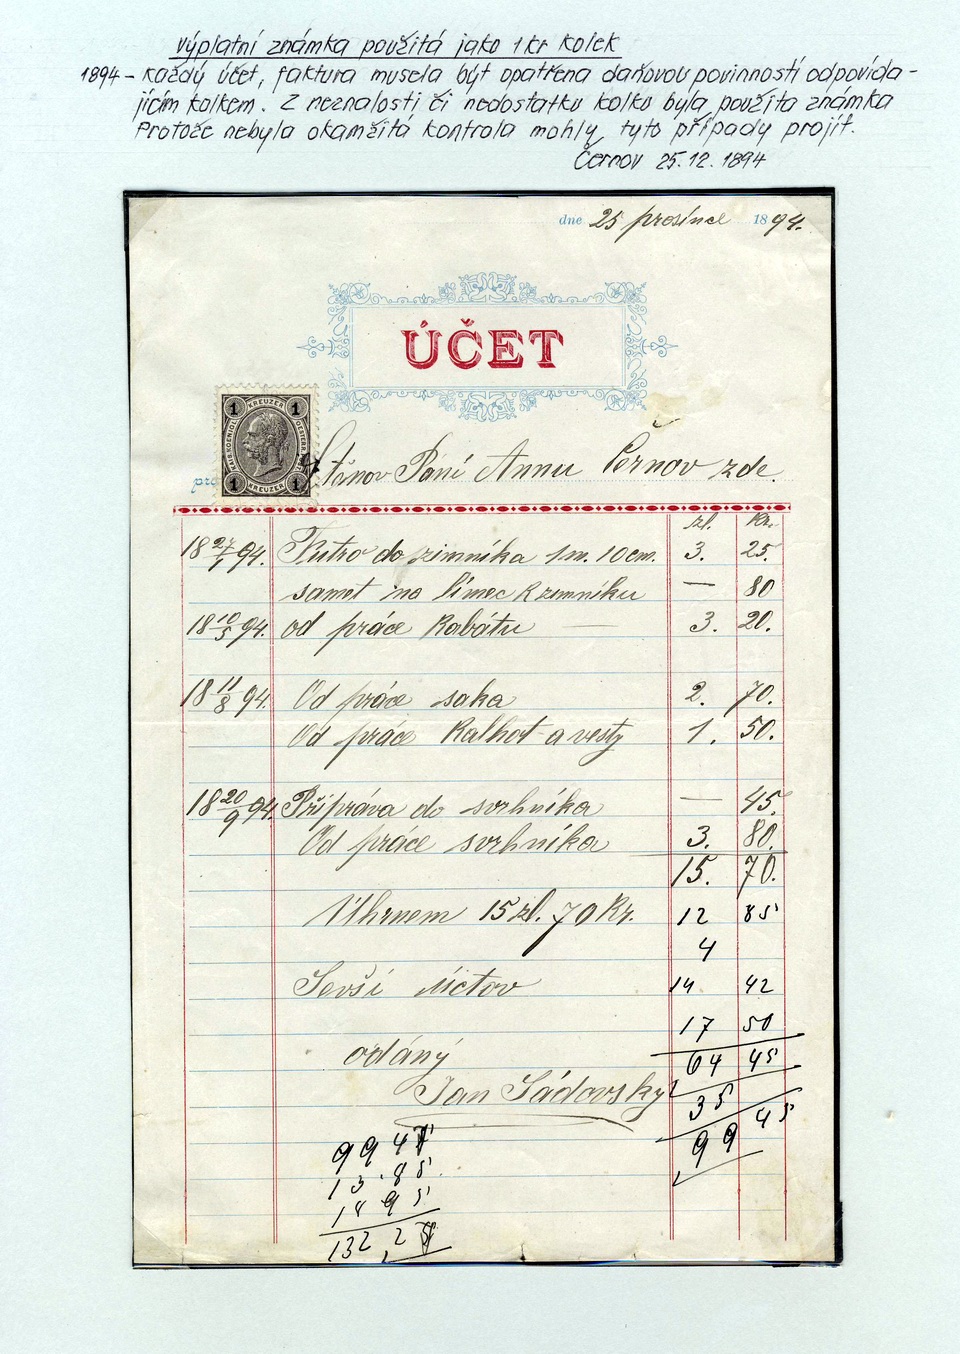 Výplatní známka použitá jako 1 kr kolek
1894 - každý účet, faktura musela být opatřena daňovou povinností odpovída-
jícím kolkem. Z neznalosti či nedostatku kolků byla použita známka
Protože nebyla okamžitá kontrola mohly tyto případy projít.
Černov 25.12.1894
dne 25 prosince 1894.
ÚČET
1 KREUZER 1
1 1
pro Pani Annu Černov zde.
zl. Kr.
18 27/1 94. Futro do zimnika 1 m. 10 cm. 3. 25.
samet na límec k zimniku — 80
18 10/5 94. od práce Kabátu — 3. 20.
18 11/8 94. Od práce saka 2. 70.
Od práce Kalhot a vesty 1. 50.
18 20/9 94. Příprava do svrhnika — 45.
Od práce svrhnika 3. 80.
15. 70.
Uhrnem 15 zl. 70 Kr. 12 85
4
14 42
17 50
odaný 64 45
Jan Sádovský 35
99 45
13.85
132,2